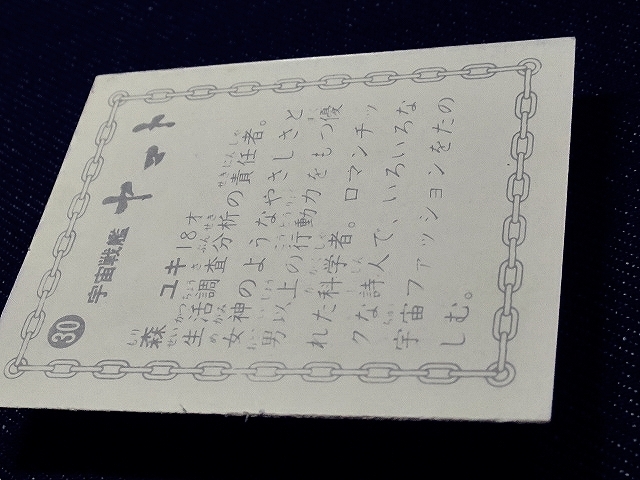 30
宇宙戦艦
ヤマト
森 ユキ 18才
生活調査分析の責任者。
女神のようなやさしさと
男以上の行動力をもつ優
れた科学者。ロマンチッ
クな詩人で、いろいろな
宇宙ファッションをたの
しむ。